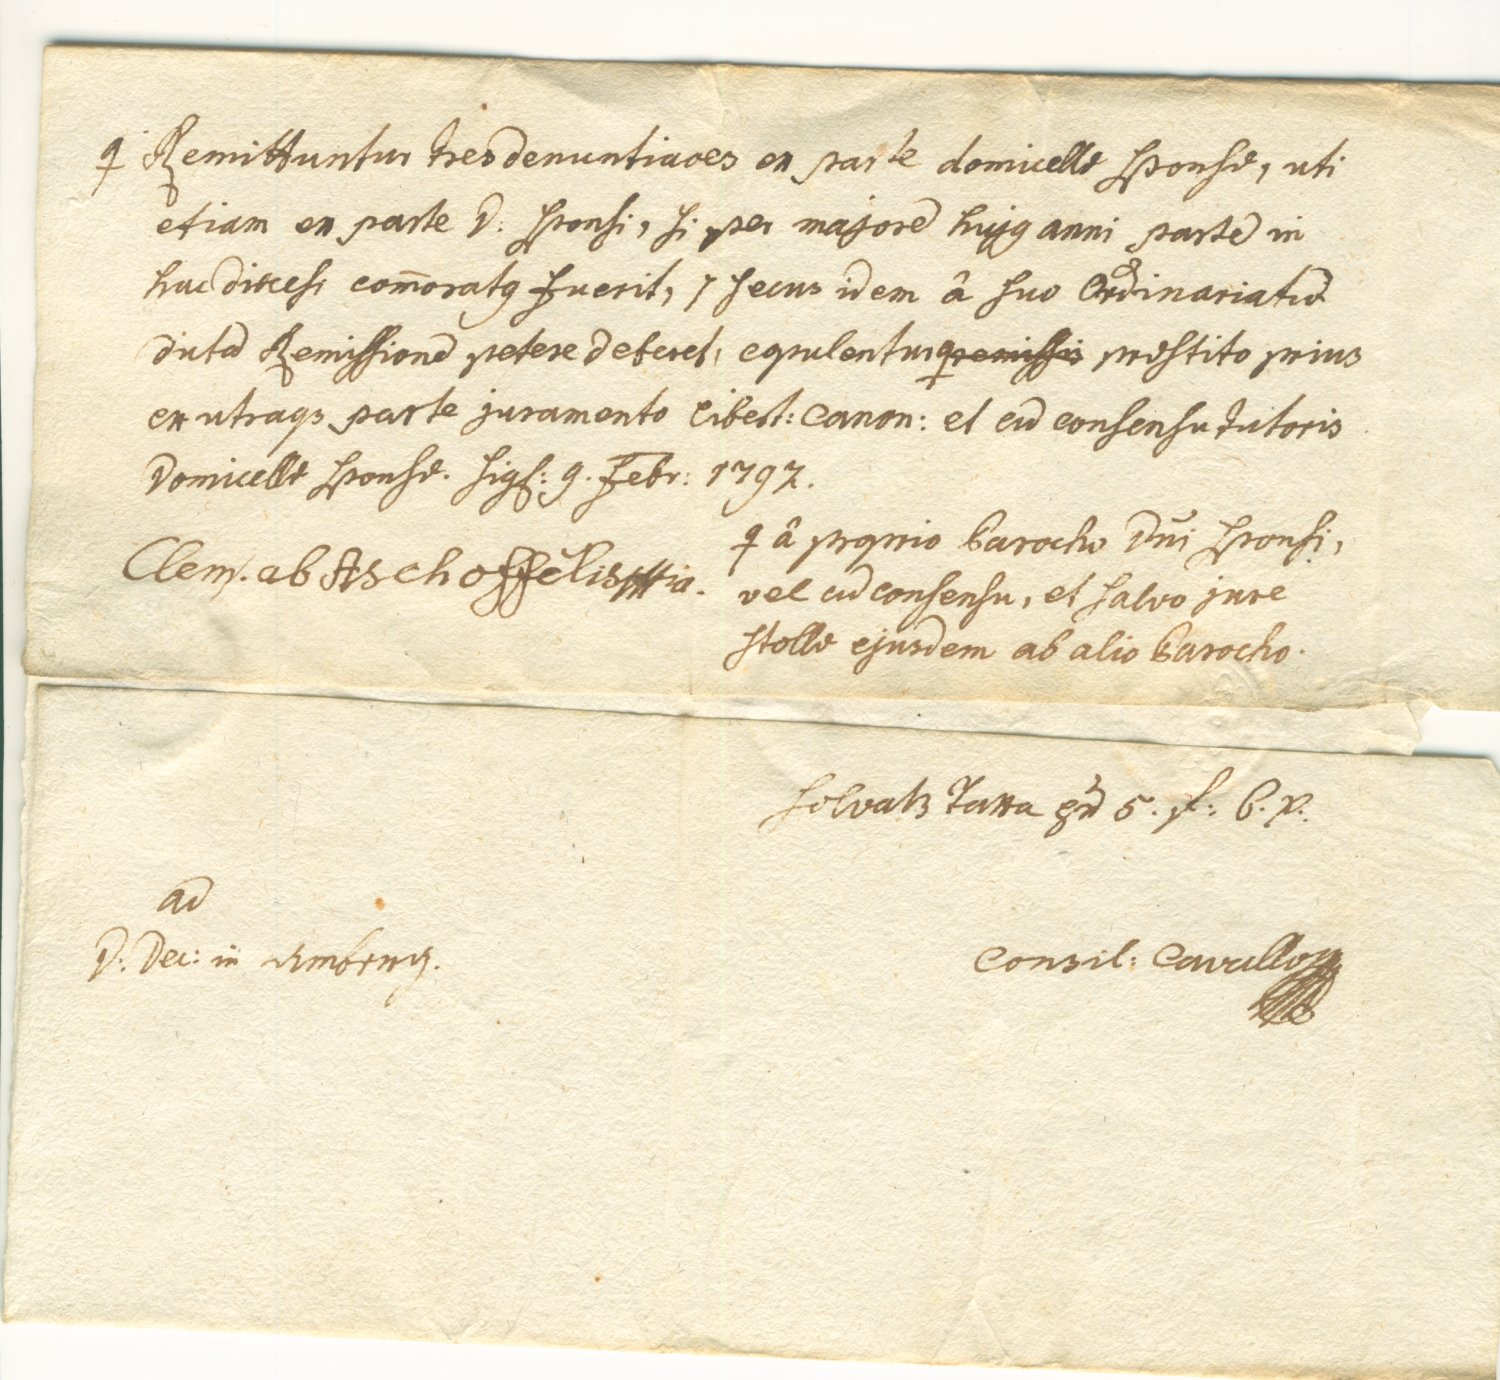 Remittuntur tres denuntiaões ex parte domicellæ Sponsæ, uti
etiam ex parte D: Sponsi, si per majorē hujꝯ anni partē in
hac diœcesi com̄oratꝯ fuerit, secus idem â suo Ordinariatu
dictā Remissionē petere deberet, copulentur præstito prius
ex utraqꝫ parte juramento libert: Canon: et cū consensu tutoris
Domicellæ Sponsæ. Sigl: 9. Febr: 1797.
â proprio Parocho Dn̄i Sponsi,
Clem. ab Aschoff
vel cū consensu, et salvo jure
stollæ ejusdem ab alio Parocho.
Solvatr Taxa 5. f: 6. x.
ad
D: Dec: in Amberg.
Consil: Cavallo